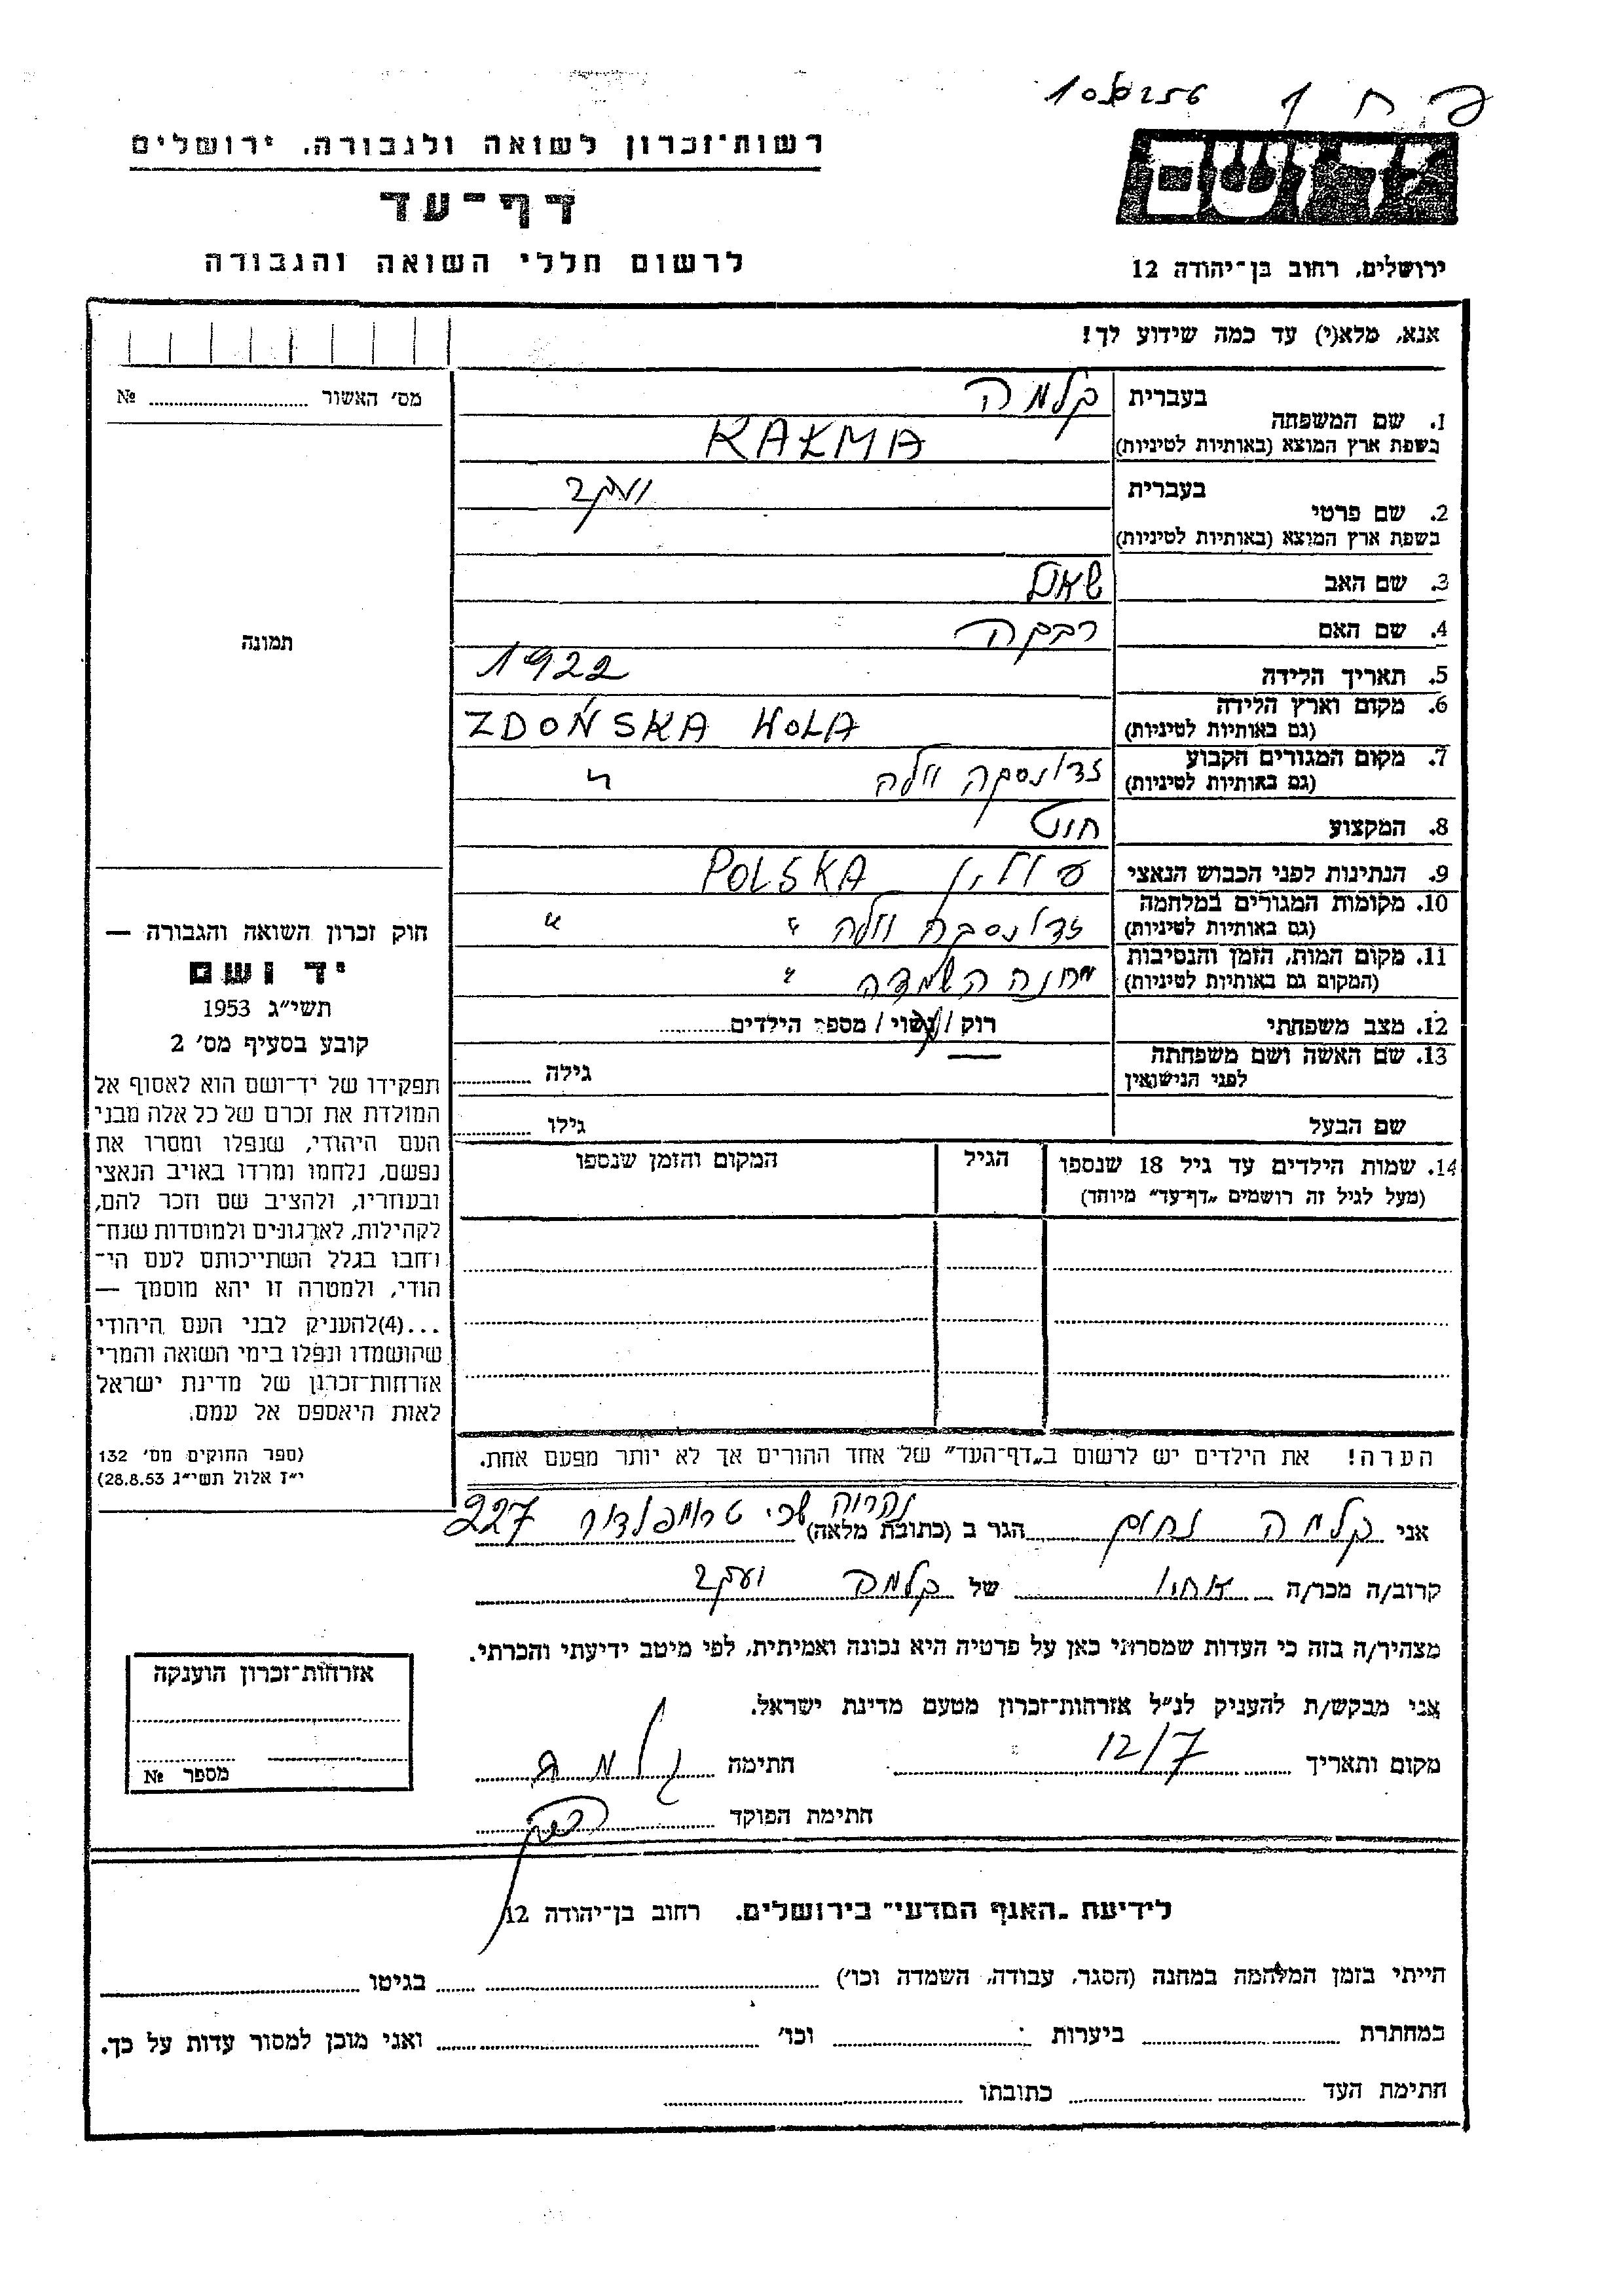 פ ח 1 108256
יד ושם
רשות־זכרון לשואה ולגבורה, ירושלים
דף־עד
לרשום חללי השואה והגבורה
ירושלים, רחוב בן־יהודה 12
אנא, מלא(י) עד כמה שידוע לך!
מס׳ האשור № 
1. שם המשפחה בעברית קלמה
בשפת ארץ המוצא (באותיות לטיניות) KAŁMA
2. שם פרטי בעברית יעקב
בשפת ארץ המוצא (באותיות לטיניות)
3. שם האב שאול
4. שם האם רבקה
5. תאריך הלידה 1922
6. מקום וארץ הלידה ZDOŃSKA WOLA
(גם באותיות לטיניות)
7. מקום המגורים הקבוע זדונסקה וולה "
(גם באותיות לטיניות)
8. המקצוע חייט
9. הנתינות לפני הכבוש הנאצי פולין POLSKA
10. מקומות המגורים במלחמה זדונסקה וולה " "
(גם באותיות לטיניות)
11. מקום המות, הזמן והנסיבות מחנה השמדה "
(המקום גם באותיות לטיניות)
12. מצב משפחתי רוק / נשוי / מספר הילדים
13. שם האשה ושם משפחתה גילה
לפני הנישואין
שם הבעל גילו
14. שמות הילדים עד גיל 18 שנספו הגיל המקום והזמן שנספו
(מעל לגיל זה רושמים „דף־עד״ מיוחד)
הערה! את הילדים יש לרשום ב„דף־העד״ של אחד ההורים אך לא יותר מפעם אחת.
תמונה
חוק זכרון השואה והגבורה —
יד ושם
תשי״ג 1953
קובע בסעיף מס׳ 2
תפקידו של יד־ושם הוא לאסוף אל
המולדת את זכרם של כל אלה מבני
העם היהודי, שנפלו ומסרו את
נפשם, נלחמו ומרדו באויב הנאצי
ובעוזריו, ולהציב שם וזכר להם,
לקהילות, לארגונים ולמוסדות שנח־
רחבו בגלל השתייכותם לעם הי־
הודי, ולמטרה זו יהא מוסמך —
...(4)להעניק לבני העם היהודי
שהושמדו ונפלו בימי השואה והמרי
אזרחות־זכרון של מדינת ישראל
לאות היאספם אל עמם.
(ספר החוקים מס׳ 132
י״ז אלול תשי״ג 28.8.53)
אני קלמה נחום הגר ב (כתובת מלאה) נהריה שכי טרומפלדור 227
קרוב/ה מכר/ה אחיו של קלמה יעקב
מצהיר/ה בזה כי העדות שמסרתי כאן על פרטיה היא נכונה ואמיתית, לפי מיטב ידיעתי והכרתי.
אני מבקש/ת להעניק לנ״ל אזרחות־זכרון מטעם מדינת ישראל.
מקום ותאריך 12/7 חתימה קלמה
חתימת הפוקד
אזרחות־זכרון הוענקה
מספר №
לידיעת „האגף המדעי״ בירושלים, רחוב בן־יהודה 12
הייתי בזמן המלחמה במחנה (הסגר, עבודה, השמדה וכו׳) בגיטו
במחתרת ביערות וכו׳ ואני מוכן למסור עדות על כך.
חתימת העד כתובתו